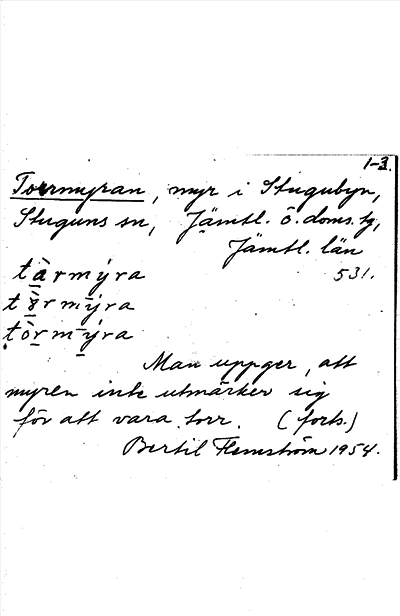 1-3.
Torrmyran, myr i Stugubyn,
Stuguns sn, Jämtl. ö. doms. tg,
Jämtl. län
tàrmýra 531.
tòrmýra
tòrmýra
Man uppger, att
myren inte utmärker sig
för att vara torr. (forts.)
Bertil Flemström 1954.